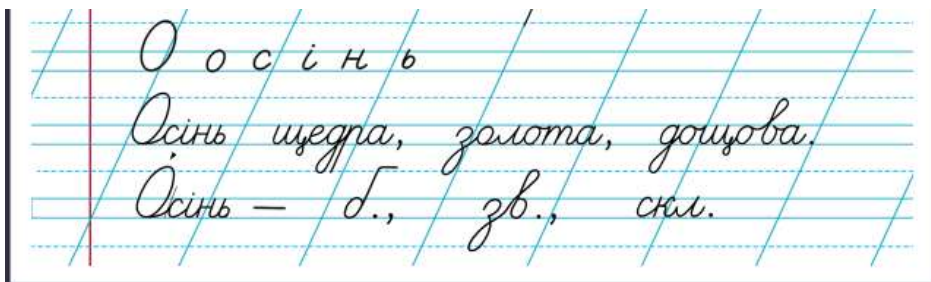 О о с і н ь
Осінь щедра, золота, дощова.
О́сінь — б., зв., скл.